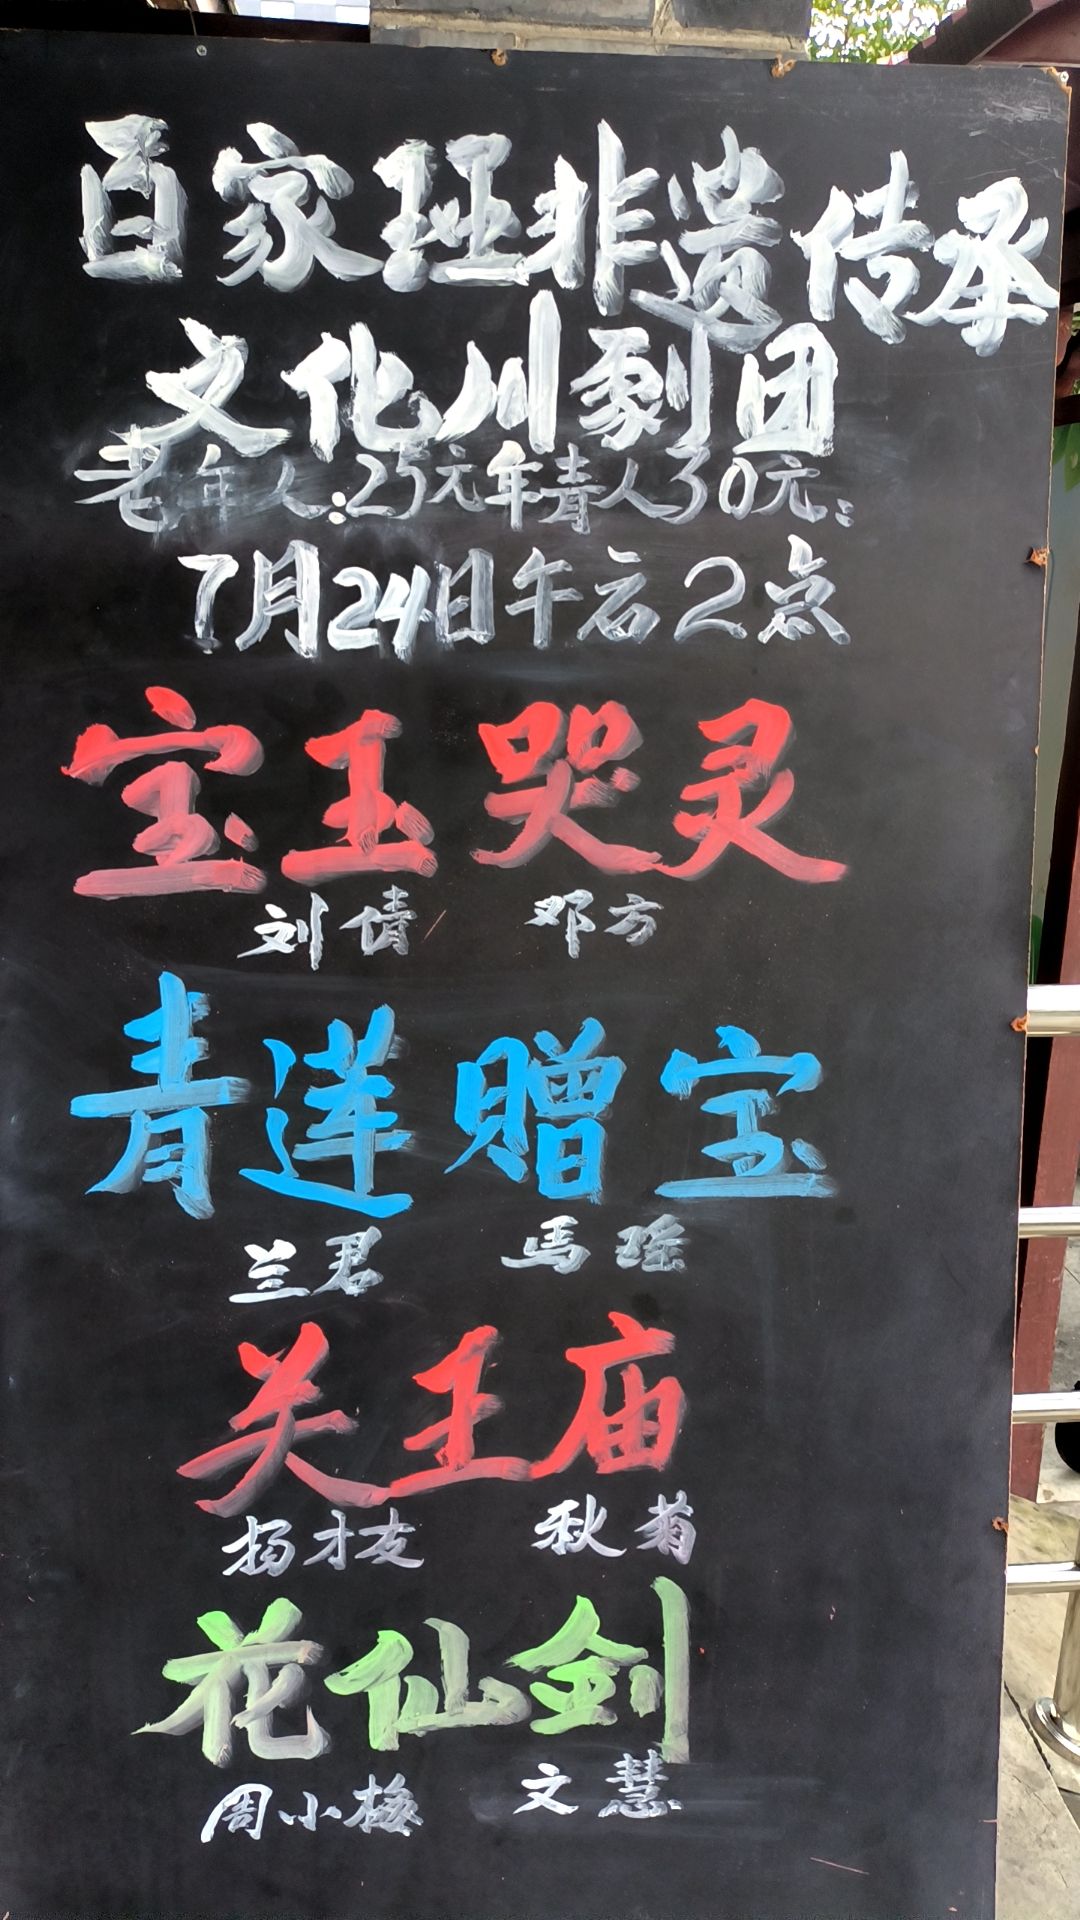 百家班非遗传承
文化川剧团
老年人:25元年青人30元:
7月24日午后2点
宝玉哭灵
刘倩 邓方
青莲赠宝
兰君 馬瑶
关王庙
扬才友 秋菊
花仙剑
周小梅 文慧